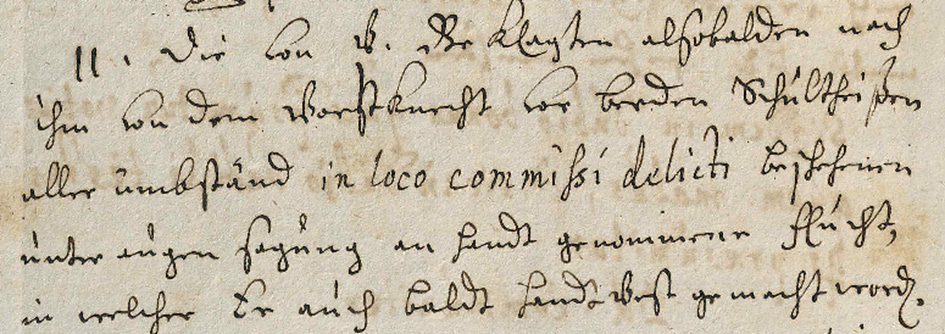 11. Die von B. Beklagten alsobalden nach
ihm von dem Vorstknecht vor beeden Schültheißen
aller ümbständ in loco commissi delicti beschehenen
ünter aügen sagüng an handt genommene flücht,
in welcher Er aüch baldt handtvest gemacht word.